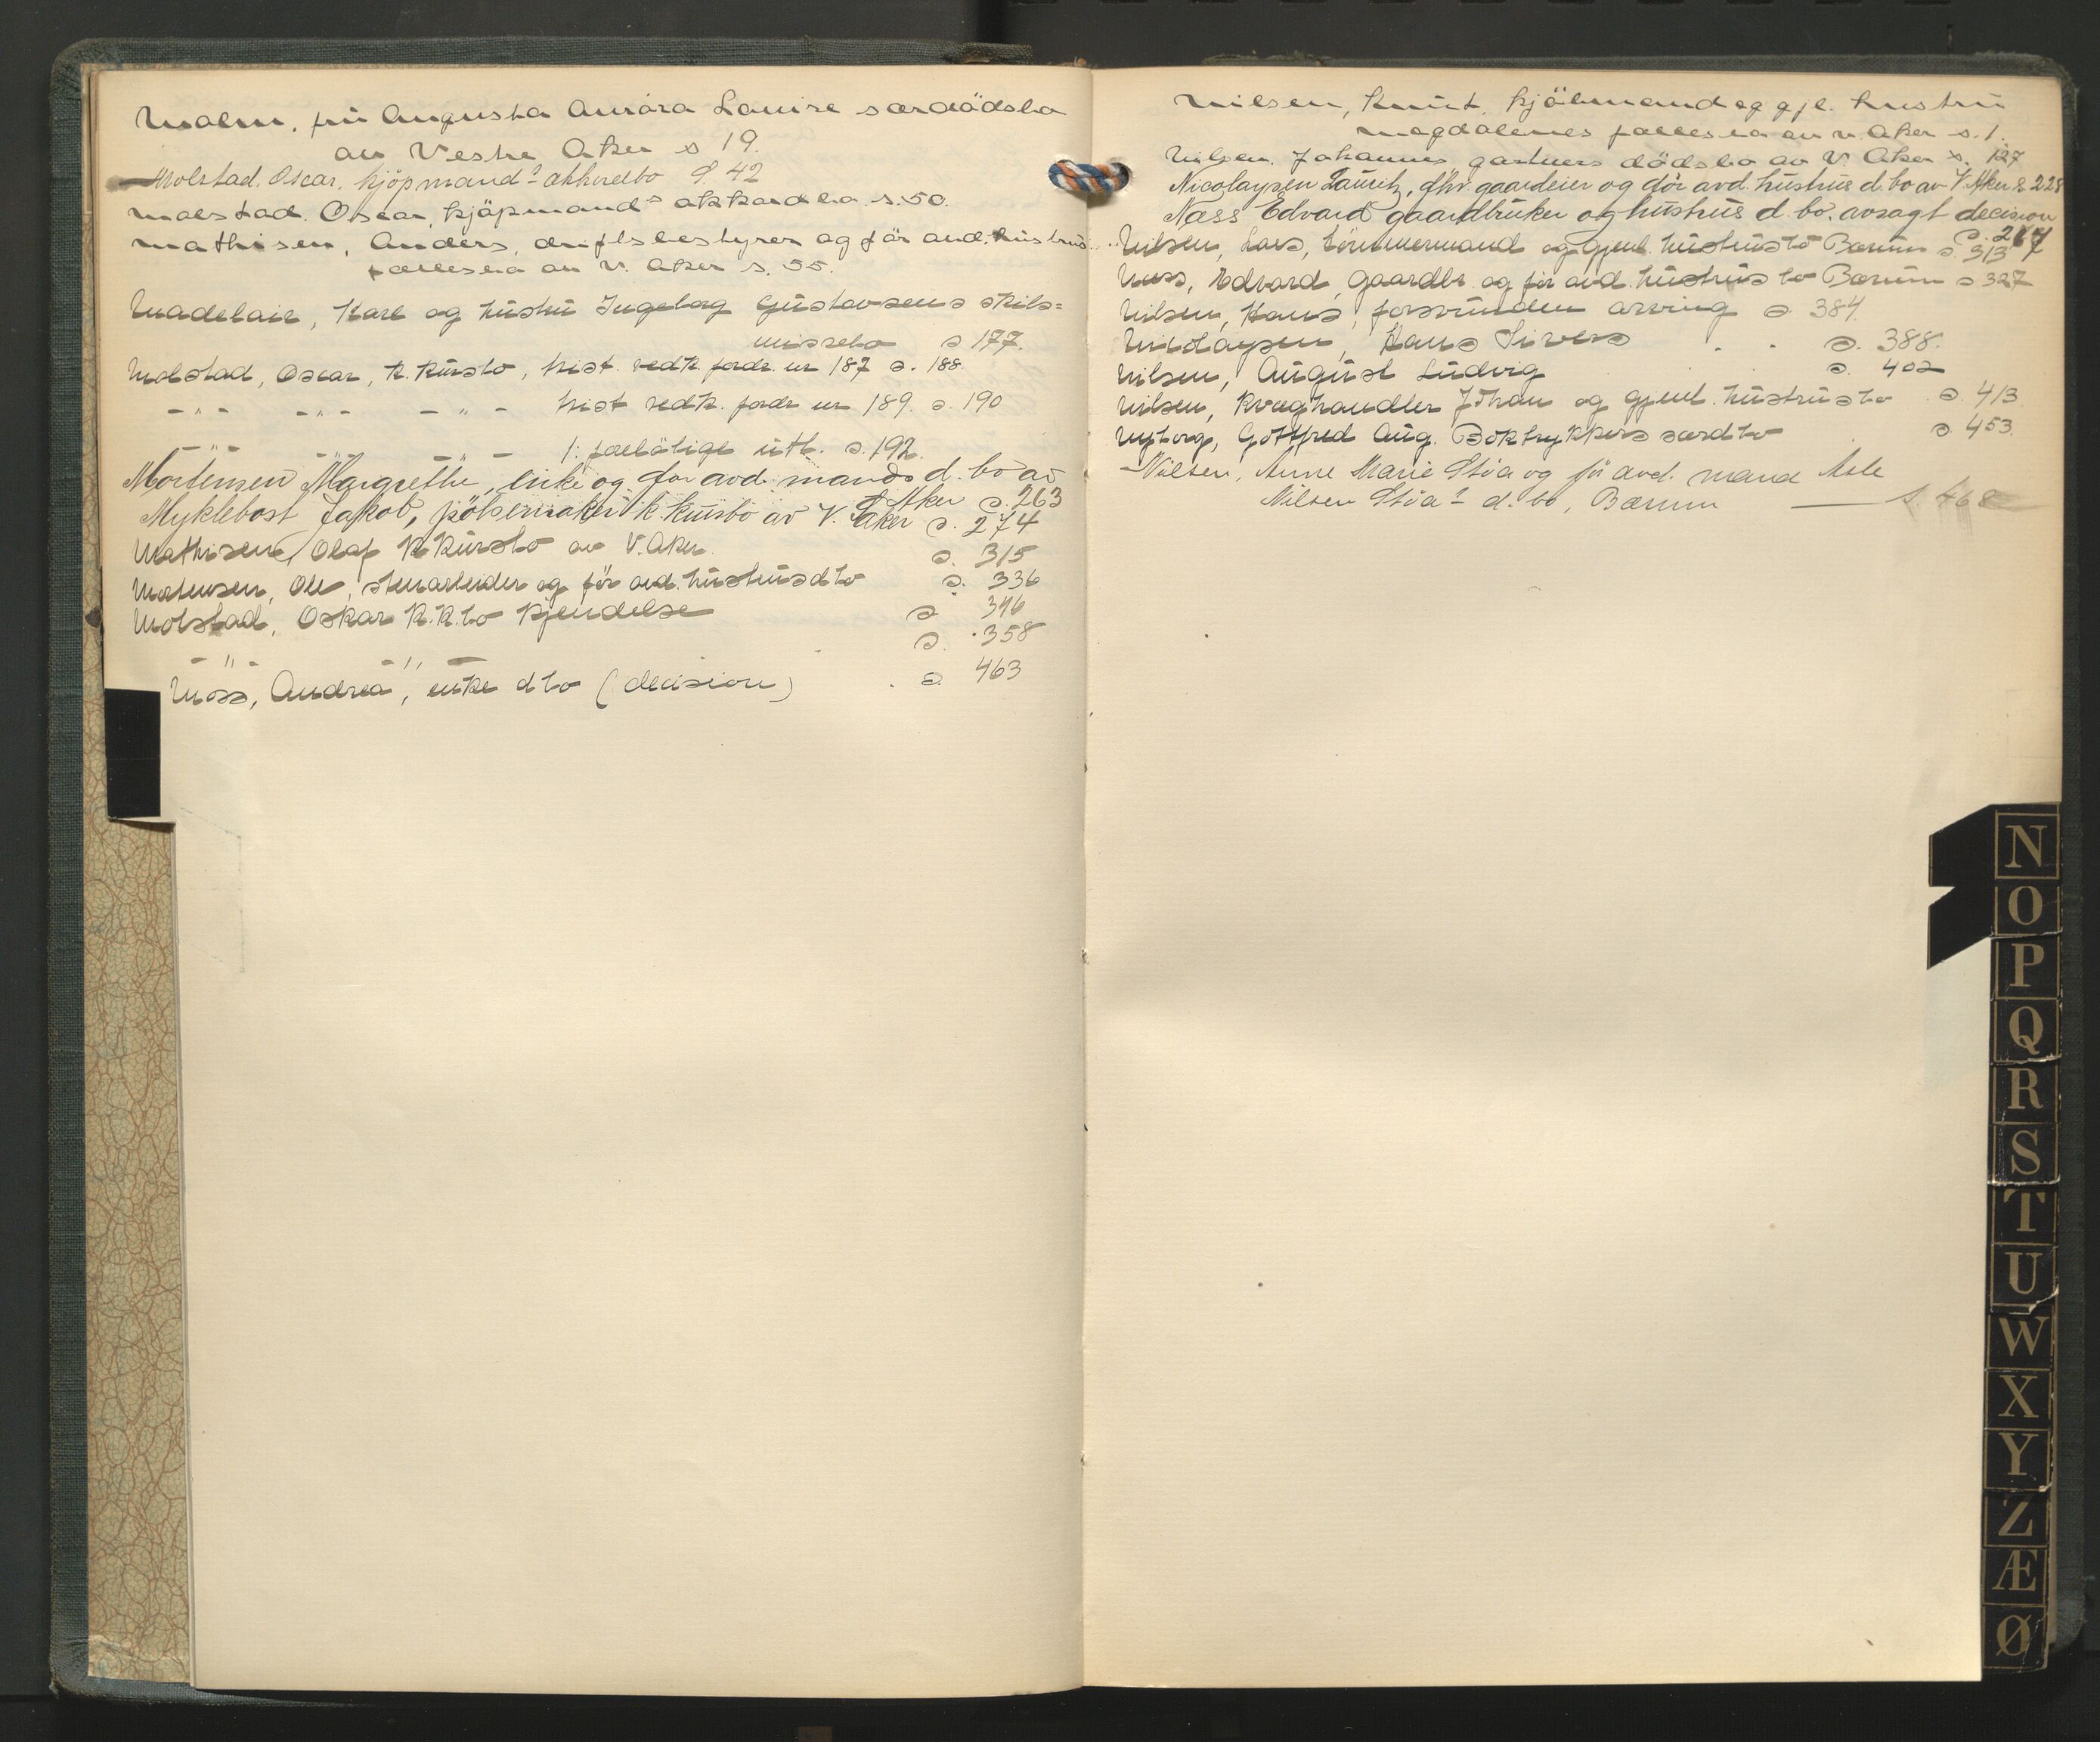 Malm, fru Augusta Aurora Louise særdödsbo
av Vestre Aker s 19.
Molstad. Oscar. kjöpmands akkordbo S 42
Molstad. Oscar, kjöpmands akkordbo. s. 50.
Mathisen, Anders, driftsbestyrer og för avd. hustrus
fællesbo av V. Aker s. 55.
Madelair, Karl og hustru Ingeborg Gustavsens skils=
missebo s 177.
Molstad, Oscar, k.kursbo, hist. vedk. fordr. nr 187 s. 188
- " - - " - - " - hist vedk. fordr nr 189. s. 190
- " - - " - - " - 1. forelöbige utl. s. 192.
Mortensen Margrethe, enke og for avd. mands d. bo av
V. Aker s. 263
Myklebost Jakob, pölsemaker k. kursbo av V. Aker s. 274
Mathisen, Olaf k.kursbo av V. Aker. s. 315
Mortensen, Ole, stenarbeider og för avd. hustrus dbo s. 336
Molstad, Oskar k.k.bo kjendelse s 346
- " - - " - s. 358
Moss, Andrea, enke dbo (decision) s. 463
Nilsen, Knut. kjöbmand og gjl. hustru
Magdalenes fællesbo av v. Aker s. 1.
Nilsen. Johannes gartners dödsbo av V. Aker s. 127
Nicolaysen Lauritz, fhv. gaardeier og för avd. hustrus d. bo av V. Aker s. 228
Næss Edvard gaardbruker og hustrus d. bo. avsagt decision
s. 267
Nilsen, Lars, tömmermand og gjenl. hustrus bo Bærum s. 313
Næss, Edvard, gaardbr. og för avd. hustrus bo Bærum s 327
Nilsen, Hans, forsvunden arving s 384.
Nicolaysen, Hans Sivers s. 388.
Nilsen, August Ludvig s. 402
Nilsen, kvæghandler Johan og gjenl. hustrus bo s. 413
Nyborg, Gottfred Aug. Boktrykkers særdbo s. 453.
Nilsen, Anne Marie Stöa og för avd. mand Asle
Nilsen Stöas d. bo, Bærum s. 468
N
O
P
Q
R
S
T
U
W
X
Y
Z
Æ
Ø